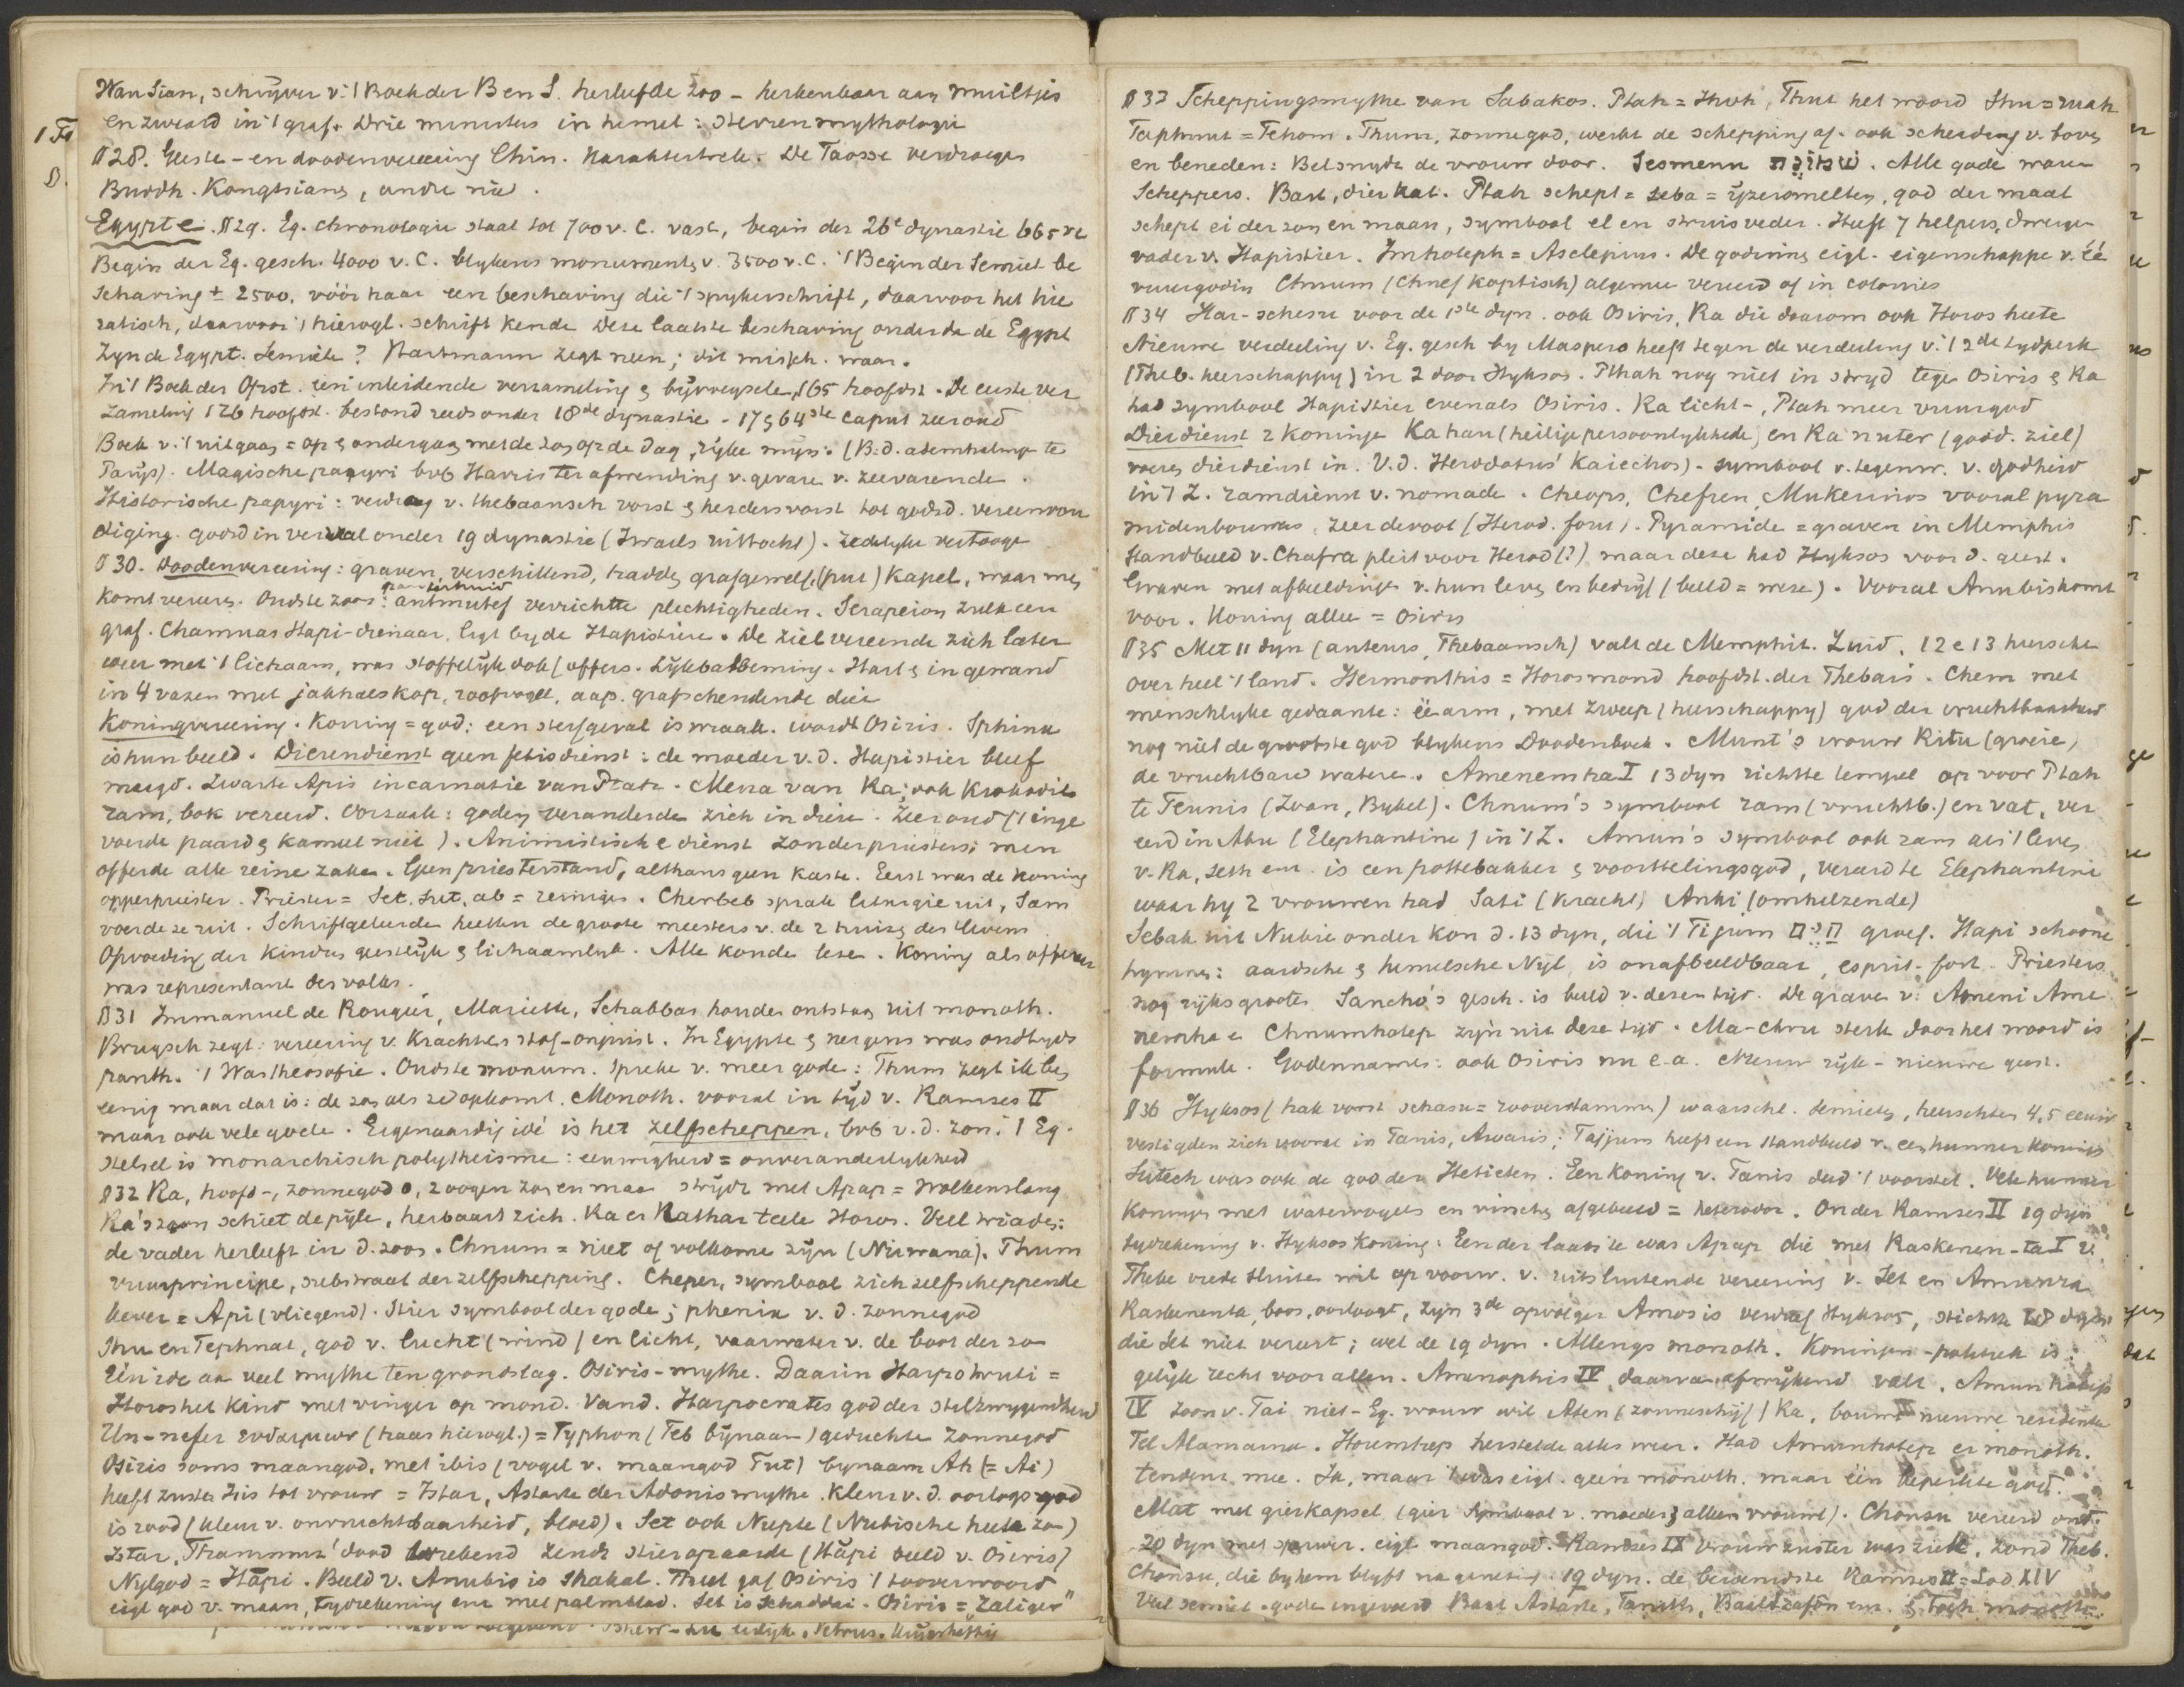 Wan Sian, schrijver v. 't Boek der B en S. herleefde zoo - herkenbaar aan muiltjes
en zwaard in 't graf. Drie ministers in hemel: sterrenmythologie
§ 28. Geeste- en doodenvereering Chin. karaktertrek. De Taosse verdroegen
Buddh. Kongtsians, andre niet.
Egypte. § 29. Eg. chronologie staat tot 700 v. C. vast, begin der 26e dynastie 665 v C
Begin der Eg. gesch. 4000 v. C. blijkens monuments v. 3500 v. C. 't Begin der Semiet. be
schaving ± 2500, vóór haar een beschaving die 't spijkerschrift, daarvoor het hie
ratisch, daarvoor 't hierogl. schrift kende Deze laatste beschaving onder de Egypt
Zijn de Egypt. Semiete? Hartmann zegt neen; dit misch. waar.
In 't Boek der Opst. een inleidende verzameling & bijvoegsels 165 hoofdst. De eerste ver
zameling 126 hoofdst. bestond reeds onder 18de dynastie - 17 & 64ste caput zeer oud
Boek v. 't uitgaan = op & ondergaan met de zon op de dag, rijke mijn. (B. d. ademhaling te
Parijs). Magische papyri bvb Harris ter afwending v. gevare v. zeevarende.
Historische papyri: verdrag v. thebaansch vorst & herdersvorst tot godsd. vereenvou
diging. godsd in verval onder 19 dynastie (Israels uittocht). Zedelijke vertooge
§ 30. Doodenvereering: graven, verschillend, hadden grafgewelf, (put) kapel, waar men
komt vereren. Oudste zoon: antmutef verrichtte plechtigheden. Serapeion zulk een
graf. Chamuas Hapi-dienaar, ligt bij de Hapistiere. De ziel vereende zich later
weer met 't lichaam, was stoffelijk ook (offers. Lijkbalseming. Hart & ingewand
in 4 vazen met jakhalskop, roofvogel, aap. grafschendende dier
Koningvereering. Koning = god: een sterfgeval is wraak. wordt Osiris. Sphinx
is hun beeld. Dierendienst geen fetisdienst: de moeder v. d. Hapistier bleef
maagd. Zwarte Apis incarnatie van Ptah. Mena van Ra; ook krokodil
ram, bok vereerd. Oorzaak: goden veranderde zich in diere. Zeer oud ('t inge
voerde paard & kameel niet). Animistische dienst zonder priesters; men
offerde alle reine zake. Geen priesterstand, althans geen kaste. Eerst was de koning
opperpriester. Priester = Set. Sut, ab = reinige. Cherheb sprak liturgie uit, Sam
voerde ze uit. Schriftgeleerde heetten de groote meesters v. de 2 huizen des levens
Opvoeding der kindren geestelijk & lichaamlijk. Alle konde leze. Koning als offeraar
was representant des volks.
§ 31 Immanuel de Rougier, Mariette, Schabbas houden ontstaan uit monoth.
Brugsch zegt: vereering v. krachten & stof-onjuist. In Egypte & nergens was oudtijds
panth. 't Was theosofie. Oudste monum. spreke v. meer gode: Thum zegt ik ben
eenig maar dat is: de zon als ze opkomt. Monoth. vooral in tijd v. Ramses II
maar ook vele gode. Eigenaardig idé is het zelfscheppen, bvb v. d. zon. 't Eg.
stelsel is monarchisch polytheisme: eeuwigheid = onveranderlijkheid
§ 32 Ra, hoofd-, zonnegod o, 2 oogen zon en maan strijdt met Apap = Wolkenslang
Ra's zoon schiet de pijle, herbaart zich. Ra en Hathar teele Horos. Veel triades:
de vader herleeft in d. zoon. Chnum = niet of volkome zijn (Nirwana). Thum
vuurprincipe, substraat der zelfschepping. Cheper, symbool zich zelfscheppende
kever = Api (vliegend). Stier symbool der gode; phenix v. d. zonnegod
Shu en Tephnut, god v. lucht (wind) en licht, vaarwater v. de boot der zon
Één idee aan veel mythe ten grondslag. Osiris-mythe. Daarin Harpohruti =
Horos het kind met vinger op mond. Vand. Harpocrates god der stilzwygendheid
Un-nefer (haas hierogl.) = Typhon (Teb bijnaam) geduchte zonnegod
Osiris soms maangod, met ibis (vogel v. maangod Tut) bynaam Ah (= Ai)
heeft zuster Isis tot vrouw = Istar, Astarte der Adonismythe. Kleur v. d. oorlogsgod
is rood (kleur v. onvruchtbaarheid, bloed). Set ook Nupte (Nubische heete zon)
Istar, Thammuz' dood wrekend zendt stier op aarde (Hapi beeld v. Osiris)
Nylgod = Hapi. Beeld v. Anubis is shakal. Thut gaf Osiris 't tooverwoord
eigl god v. maan, tijdrekening enz met palmblad. Set is Schaddai. Osiris = "Zaliger"

§ 33 Scheppingsmythe van Sabakos. Ptah = Thoh, Thut het woord Shu = ruah
Tephnut = Tehom. Thum, zonnegod, werkt de schepping af. ook scheiding v. boven
en beneden: Bel snydt de vrouw door. Sesmenu. Alle gode ware
Scheppers. Bast, dier kat. Ptah schept = Seba = ijzersmelten, god der maat
schept ei der zon en maan, symbool el en struisveder. Heeft 7 helpers, dwergen
vader v. Hapistier. Imhoteph = Asclepius. De godinnen eigl. eigenschappe v. éé
vuurgodin Chnum (Chnef koptisch) algemeen vereerd of in colonies
§ 34 Har-schesu voor de 1ste dyn. ook Osiris, Ra die daarom ook Horos heete
Nieuwe verdeeling v. Eg. gesch by Maspero heeft tegen de verdeeling v. 't 2de tydperk
(Theb. heerschappy) in 2 door Hyksos. Pthah nog niet in stryd tegen Osiris & Ra
had symbool Hapistier evenals Osiris. Ra licht-, Ptah meer vuurgod
Dierdienst 2 koninge Kahau (heilige persoonlykhede) en Ra nuter (godd. ziel)
voeren dierdienst in. V.d. Herodotus' Kaiechos). symbool v. tegenw. v. godheid
in 't Z. ramdienst v. nomade. Cheops, Chefren, Mukerinos vooral pyra
midenbouwers, zeer devoot (Herod. fout). Pyramide = graven in Memphis
Standbeeld v. Chafra pleit voor Herod (?) maar deze had Hyksos voor d. geest.
Graven met afbeeldinge v. hun leven en bedrijf (beeld = weze). Vooral Anubis komt
voor. Koning allee = Osiris
§ 35 Met 11 dyn (anteurs, Thebaansch) valt de Memphit. Zuid. 12 e 13 hersche
over heel 't land. Hermonthis = Horosmond hoofdst. der Thebais. Chem met
menschlyke gedaante: éé arm, met zweep (heerschappy) god der vruchtbaarheid
nog niet de grootste god blykens Doodenboek. Munt's vrouw Ritu (groeie)
de vruchtbare watere. Amenemha I 13 dyn richtte tempel op voor Ptah
te Tennis (Zoan, Bybel). Chnum's symbool ram (vruchtb.) en vat, ver
eerd in Abu (Elephantine) in 't Z. Amun's symbool ook ram als 't leven
v. Ra, Seth enz. is een pottebakker & voorttelingsgod, vereerd te Elephantine
waar hy 2 vrouwen had Sati (kracht) Anki (omhelzende)
Sebak uit Nubie onder kon d. 13 dyn, die 't Fijum groef. Hapi schoone
hymnes: aardsche & hemelsche Nyl, is onafbeeldbaar, esprit-fort. Priesters
nog rijksgrooten Sancho's gesch. is beeld v. dezen tijd. De graven v. Ameni Ame
nemha e Chnumhotep zijn uit deze tijd. Ma-chru sterk door het woord is
formule. Godennames: ook Osiris nu e.a. Nieuw rijk - nieuwe geest.
§ 36 Hyksos (hak vorst schasu = rooverstamme) waarschl. Semieten, heerschten 4,5 eeuw
vestigden zich vooral in Tanis, Awaris; Tajjum heeft een standbeeld v. een hunner konings
Sutech was ook de god der Hetieten. Een koning v. Tanis deed 't voorstel. Vele hunner
Koninge met watervogels en visschen afgebeeld = heterodox. Onder Ramses II 19 dyn
tydrekening v. Hyksos koning. Een der laatste was Apap die met Raskenen-ta I v.
Thebe vrede sluiten wil op voorw. v. uitsluitende vereering v. Set en Amunra
Raskenenta, boos, oorloogt, zijn 3de opvolger Amosis verdreef Hyksos, stichtte 18 dyn.
die Set niet vereert; wel de 19 dyn. Allengs monoth. Koningen-politiek is:
gelijk recht voor allen. Amenophis IV daarvan afwijkend valt. Amunhotep
IV zoon v. Tai niet-Eg. vrouw wil Aten (zonneschijf) Ra, bouwt nieuwe residentie
Tel Alamarna. Horemhep herstelde alles weer. Had Amunhotep er monoth.
tendenz mee. Ja, maar 't was eigl. geen monoth. maar één beperkte god.
Mat met gierkapsel (gier symbool v. moeder & alleen vrouwel). Chonsu vereerd ond.
20 dyn met sperwer. eigl maangod. Ramses IX vrouw zuster was ziek, zond Theb.
Chonsu, die by hem blyft na genezing. 19 dyn. de beroemdste Ramses II = Lod XIV
Veel semiet. gode ingevoerd Baal Astarte, Tanith, Baalzafon enz. & Toch monoth.